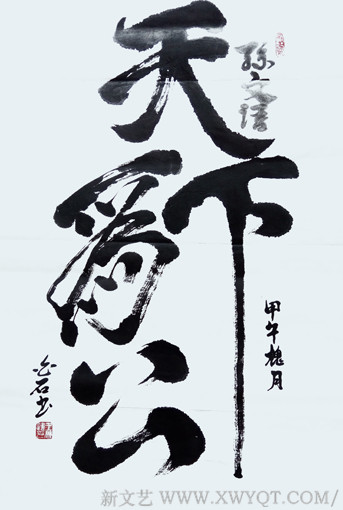 天下為公
孫文語
甲午槐月
石书
新文艺 WWW.XWYQT.COM/